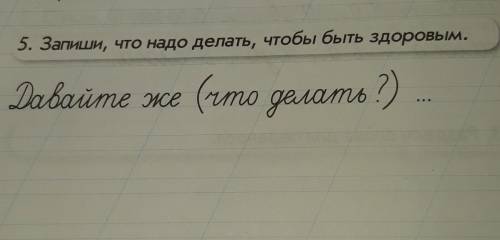 5. Запиши, что надо делать, чтобы быть здоровым.
Давайте же (что делать?) ...